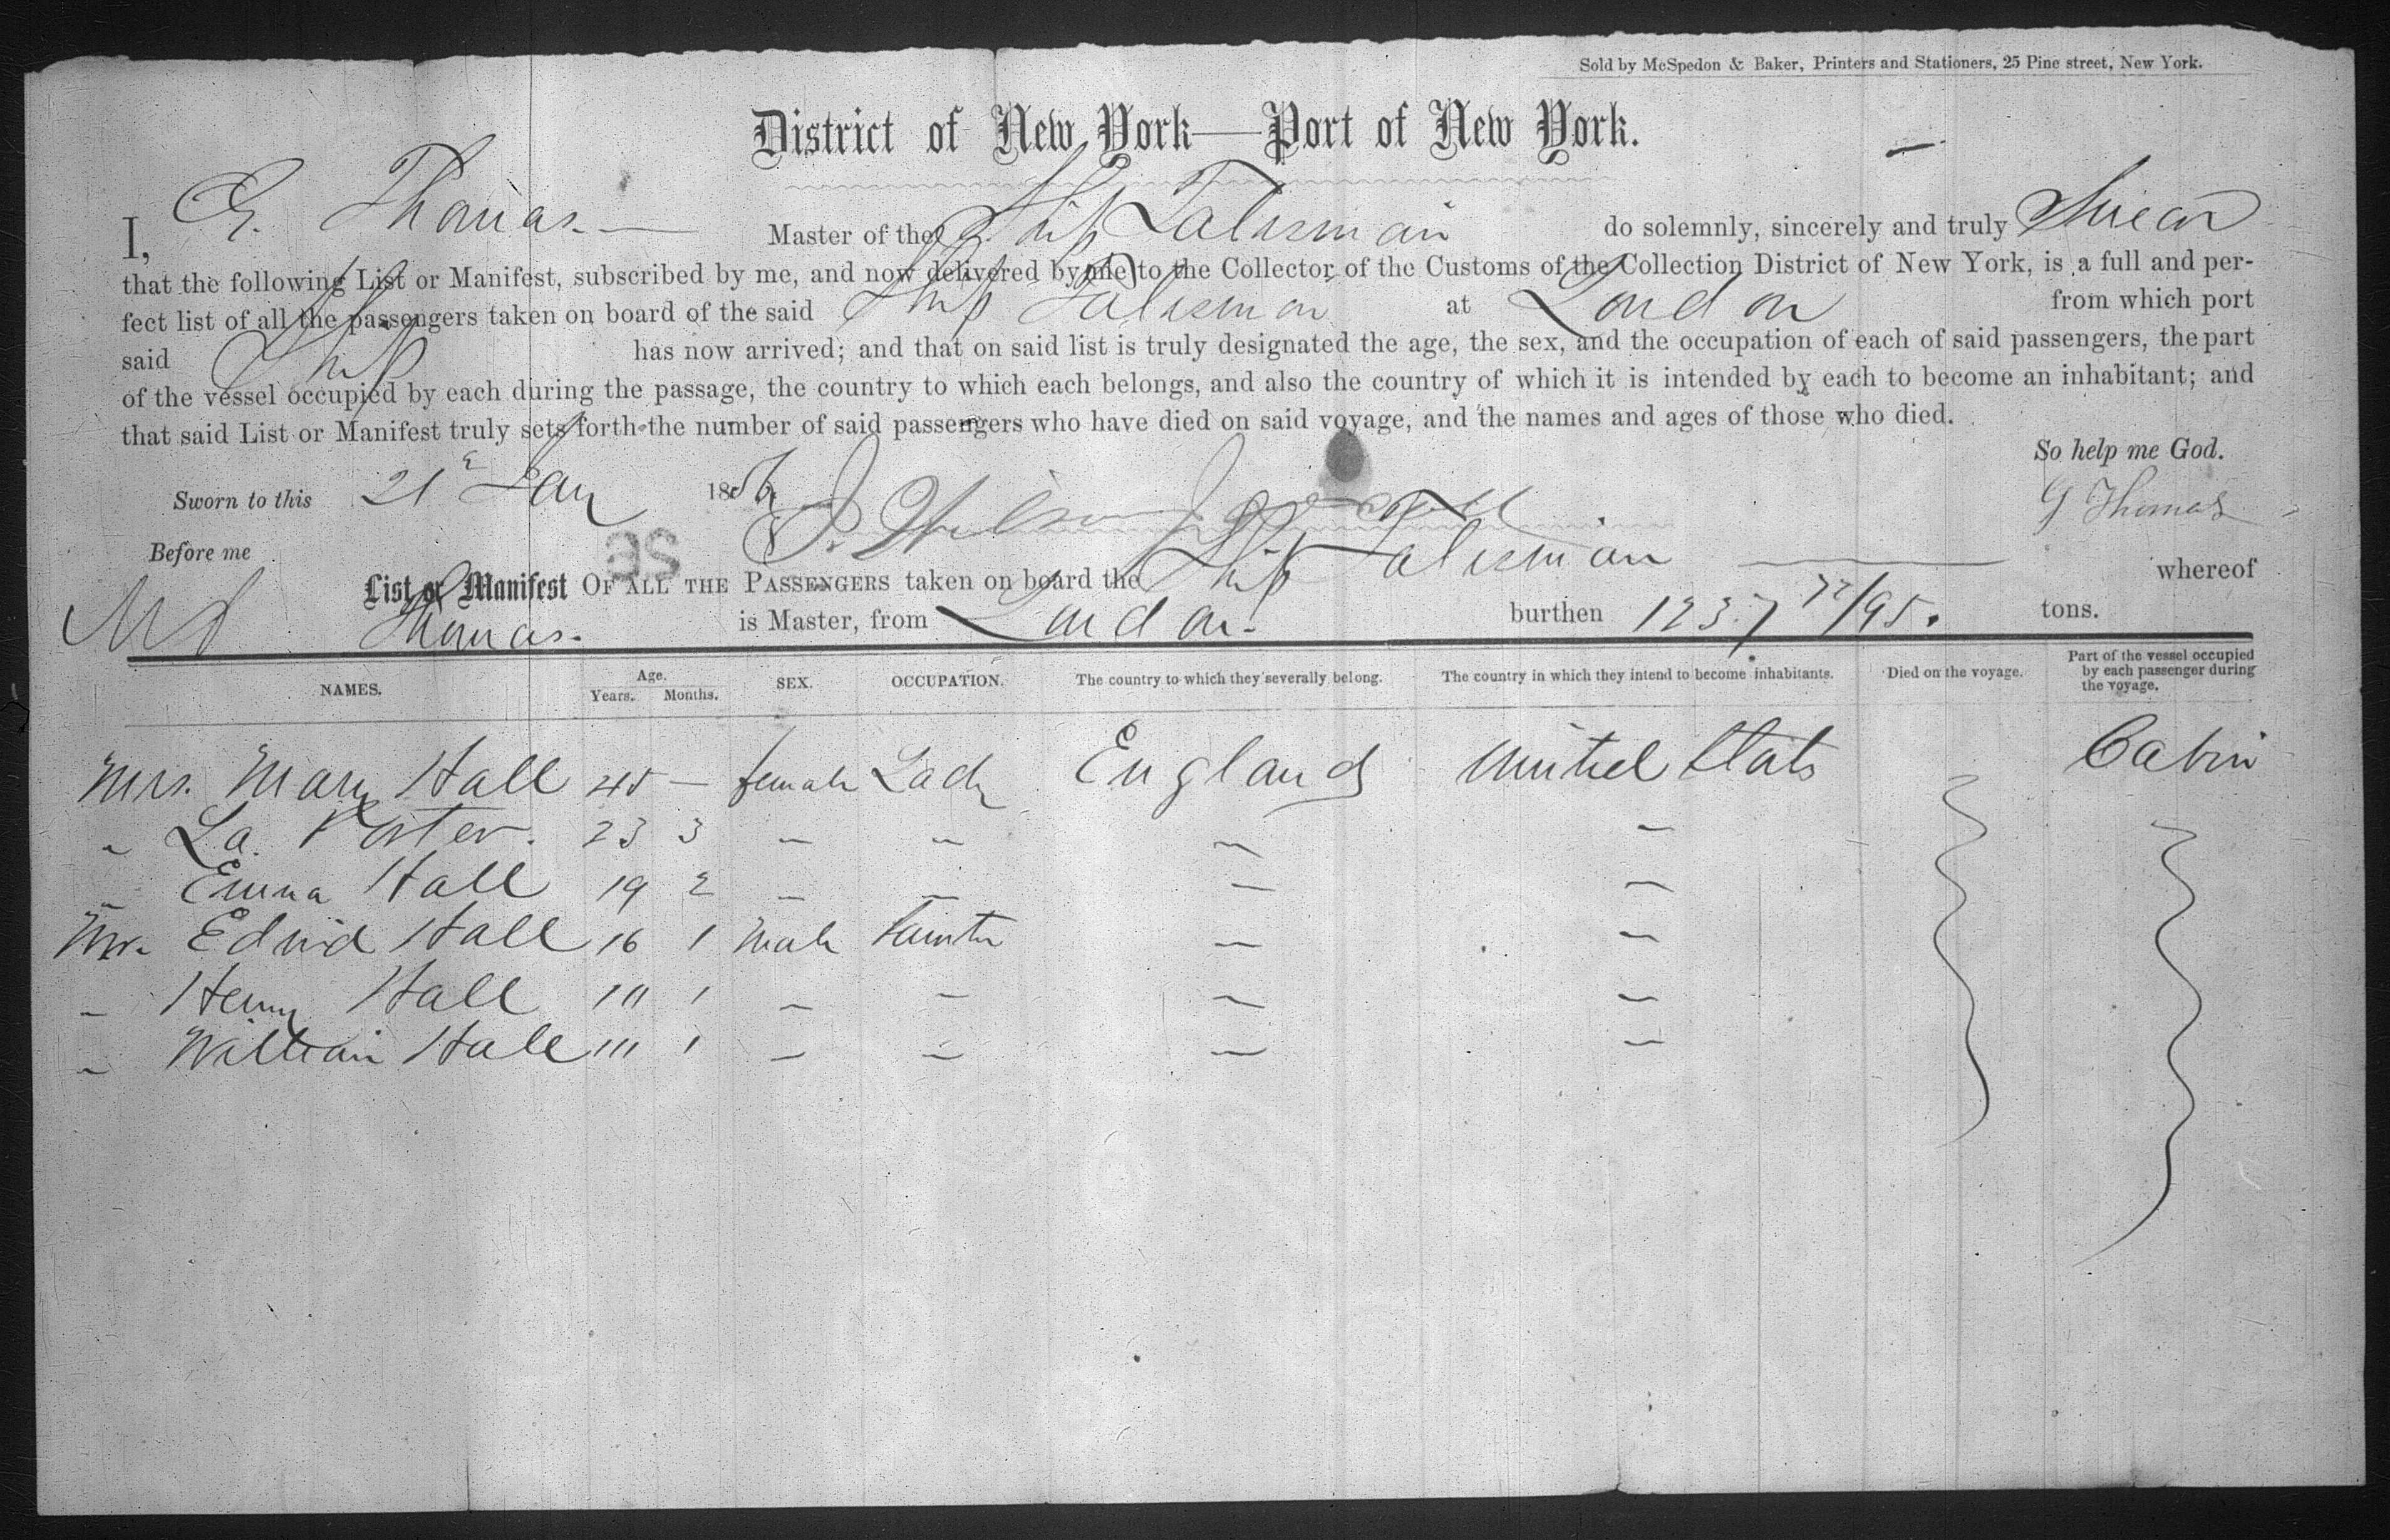 Sold by McSpedon & Baker, Printers and Stationers, 25 Pine street, New York.
District of New York—Port of New York.
I, G. Thomas. Master of the Ship Talisman do solemnly, sincerely and truly Swear
that the following List or Manifest, subscribed by me, and now delivered by me to the Collector of the Customs of the Collection District of New York, is a full and per-
fect list of all the passengers taken on board of the said Ship Talisman at London from which port
said Ship has now arrived; and that on said list is truly designated the age, the sex, and the occupation of each of said passengers, the part
of the vessel occupied by each during the passage, the country to which each belongs, and also the country of which it is intended by each to become an inhabitant; and
that said List or Manifest truly sets forth the number of said passengers who have died on said voyage, and the names and ages of those who died.
So help me God.
Sworn to this 21 Jan 1856 G Thomas
Before me
List or Manifest OF ALL THE PASSENGERS taken on board the Ship Talisman whereof
Thomas. is Master, from London. burthen 1237 /95. tons.
NAMES. Age. Years. Months. SEX. OCCUPATION. The country to which they severally belong. The country in which they intend to become inhabitants. Died on the voyage. Part of the vessel occupied by each passenger during the voyage.
Mrs. Mary Hall 45 — female Lady England United Stats Cabin
" La. Porter. 23 3 — — — —
" Emma Hall 19 2 — — — —
Mr. Edwid Hall 16 1 Male — —
" Henry Hall 1 — — — —
" William Hall 11 1 — — — —